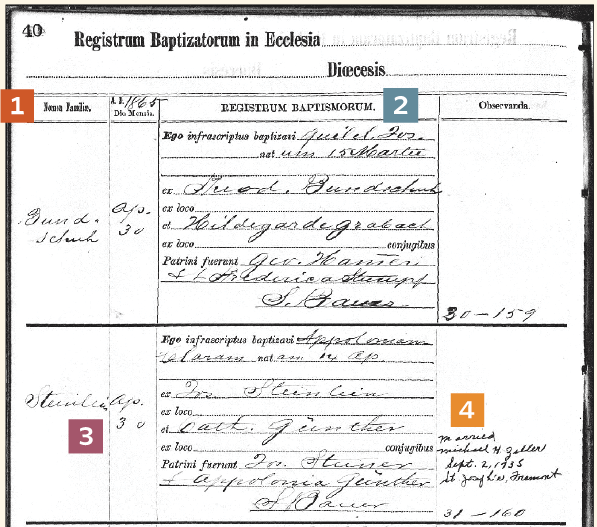 40
Registrum Baptizatorum in Ecclesia
Diœcesis.
1
Nomen Familiæ.
A. D. 1865
Die Mensis.
REGISTRUM BAPTISMORUM.
2
Observanda.
Bund-
schuh
Ap.
30
Ego infrascriptus baptizavi Guilel. Jos.
nat um 15 Martii
ex Theod. Bundschuh
ex loco
et Hildegarde Grabach
ex loco conjugibus
Patrini fuerunt Geo. Hansen
& Frederica Stumpf
S. Bauer
30-159
Steinlein
Ap.
30
3
Ego infrascriptus baptizavi Appoloniam
Claram nat am 14 Ap.
ex Jos. Steinlein
ex loco
et Cath. Günther
ex loco conjugibus
Patrini fuerunt Jos.
& Appolonia Günther
S. Bauer
4
married
Michael H. Zeller
Sept. 2, 1935
St Joseph's, Fremont
31-160